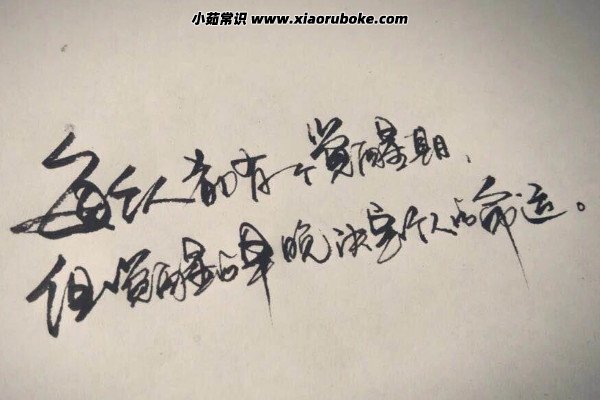 小茹常识 www.xiaoruboke.com
每个人都有一个觉醒期，
但觉醒的早晚决定个人的命运。